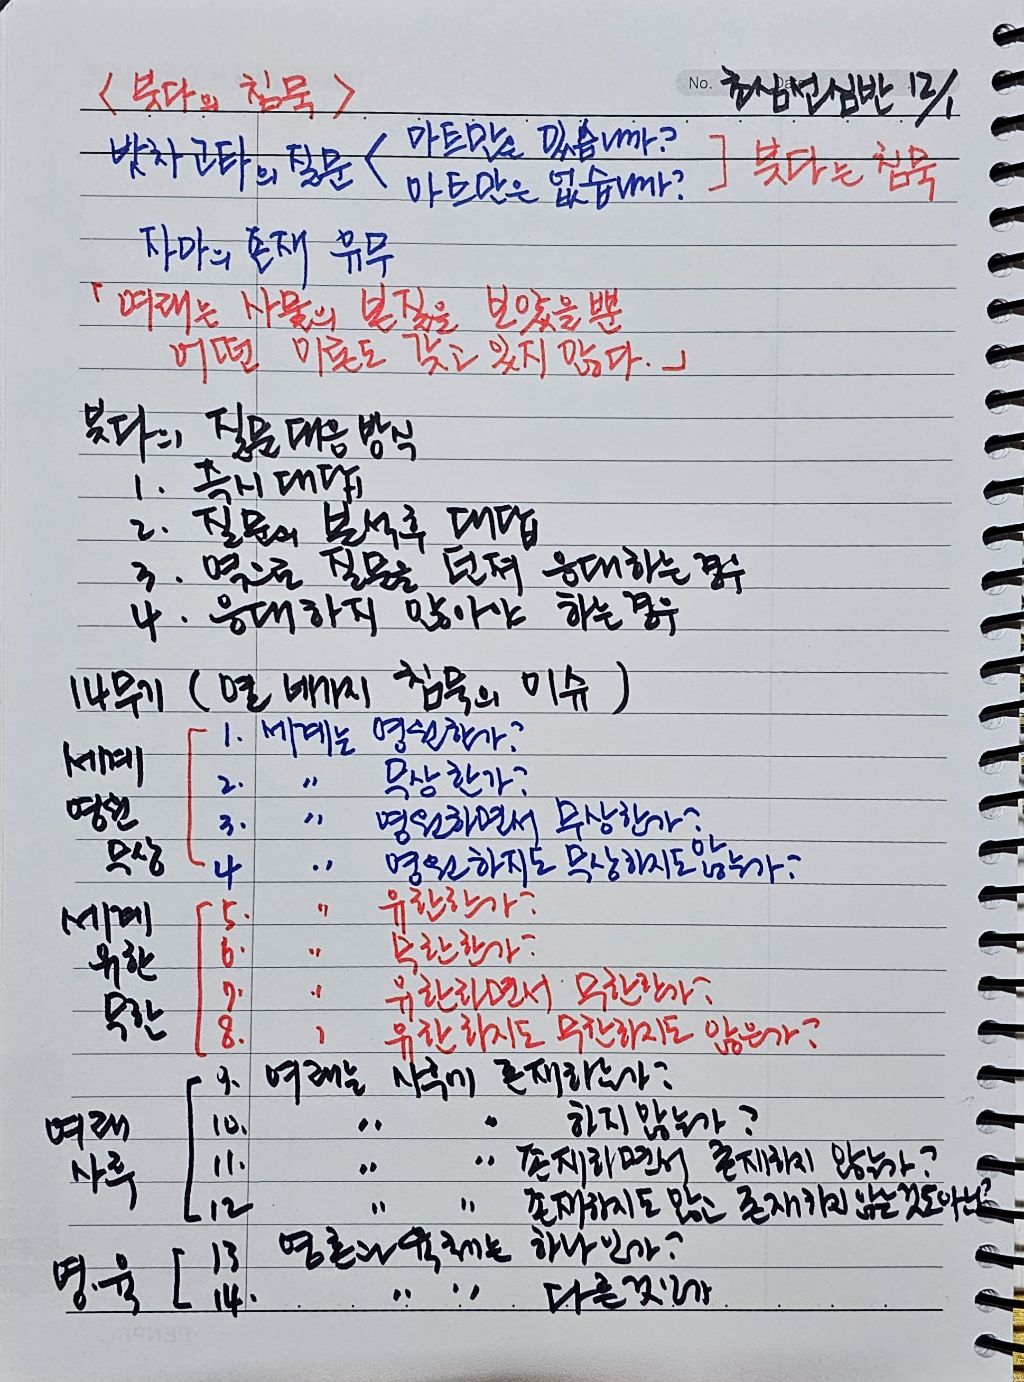 No.
초심선심반 12/1
< 붓다의 침묵 >
밧차고타의 질문 < 아트만은 있습니까?
아트만은 없습니까? ] 붓다는 침묵
자아의 존재 유무
「여래는 사물의 본질을 보았을 뿐
어떤 이론도 갖고 있지 않다.」
붓다의 질문 대응 방식
1. 즉시 대답
2. 질문의 분석후 대답
3. 역으로 질문을 던져 응대하는 경우
4. 응대하지 않아야 하는 경우
14무기 ( 열 네가지 침묵의 이슈 )
세계 영원 무상
1. 세계는 영원한가?
2. 〃 무상한가?
3. 〃 영원하면서 무상한가?
4 〃 영원하지도 무상하지도 않는가?
세계 유한 무한
5. 〃 유한한가?
6. 〃 무한한가?
7. 〃 유한하면서 무한한가?
8. 〃 유한하지도 무한하지도 않은가?
여래 사후
9. 여래는 사후에 존재하는가?
10. 〃 〃 하지 않는가?
11. 〃 〃 존재하면서 존재하지 않는가?
12 〃 〃 존재하지도 않고 존재하지 않는것도아닌?
영·육
13 영혼과 육체는 하나인가?
14. 〃 〃 다른것인가